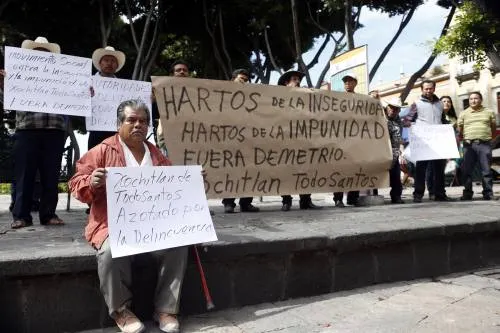 Movimiento Social
contra la Inseguridad
y la impunidad de
Xochitlan Todos Santos
FUERA DEMETRIO
HARTOS DE LA INSEGURIDAD
HARTOS DE LA IMPUNIDAD
FUERA DEMETRIO.
XOCHITLAN TODO SANTOS
Xochitlan de
Todos Santos
Azotado por
la Delincuencia